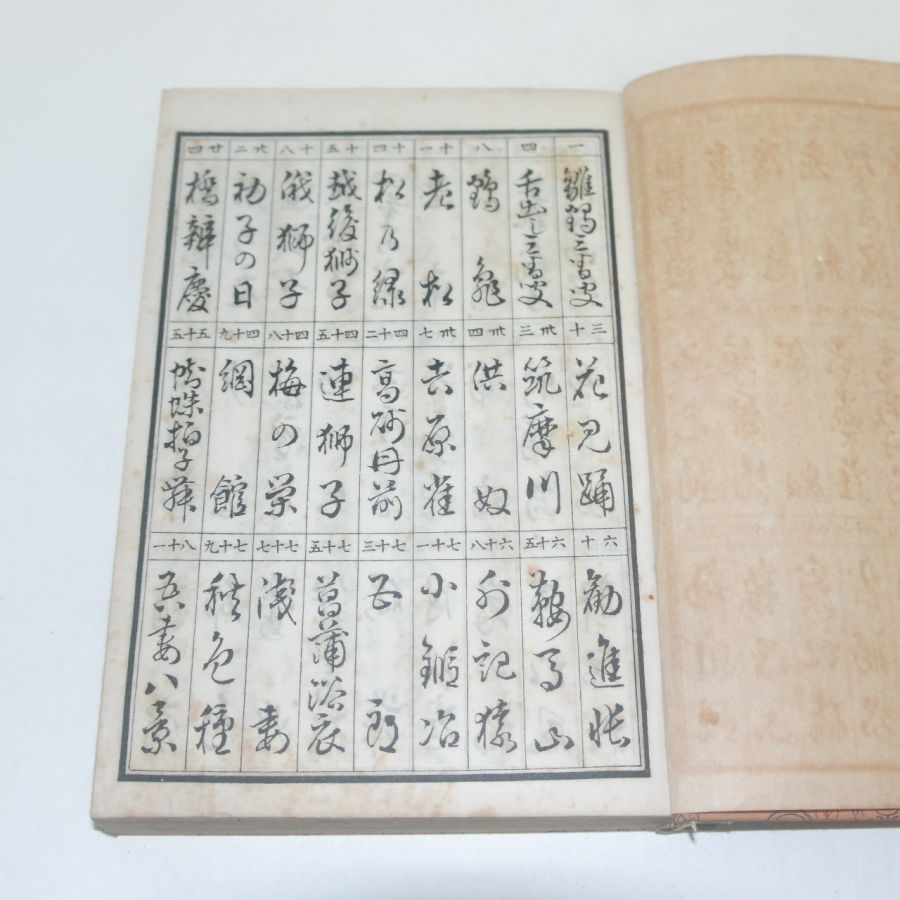 一
雛鶴三番叟
四
舌出し三番叟
八
鶴亀
十一
老松
十四
松乃緑
十五
越後獅子
十八
俄獅子
廿二
初子の日
廿四
橋辨慶
三十
花見踊
卅三
筑摩川
卅四
供奴
卅七
吉原雀
四十二
高砂丹前
四十五
連獅子
四十八
梅の栄
四十九
綱館
五十五
蜘蛛拍子舞
六十
勧進帳
六十五
鞍馬山
六十八
外記猿
七十一
小鍛冶
七十三
五郎
七十五
菖蒲浴衣
七十七
浅妻
七十九
秋色種
八十一
吾妻八景